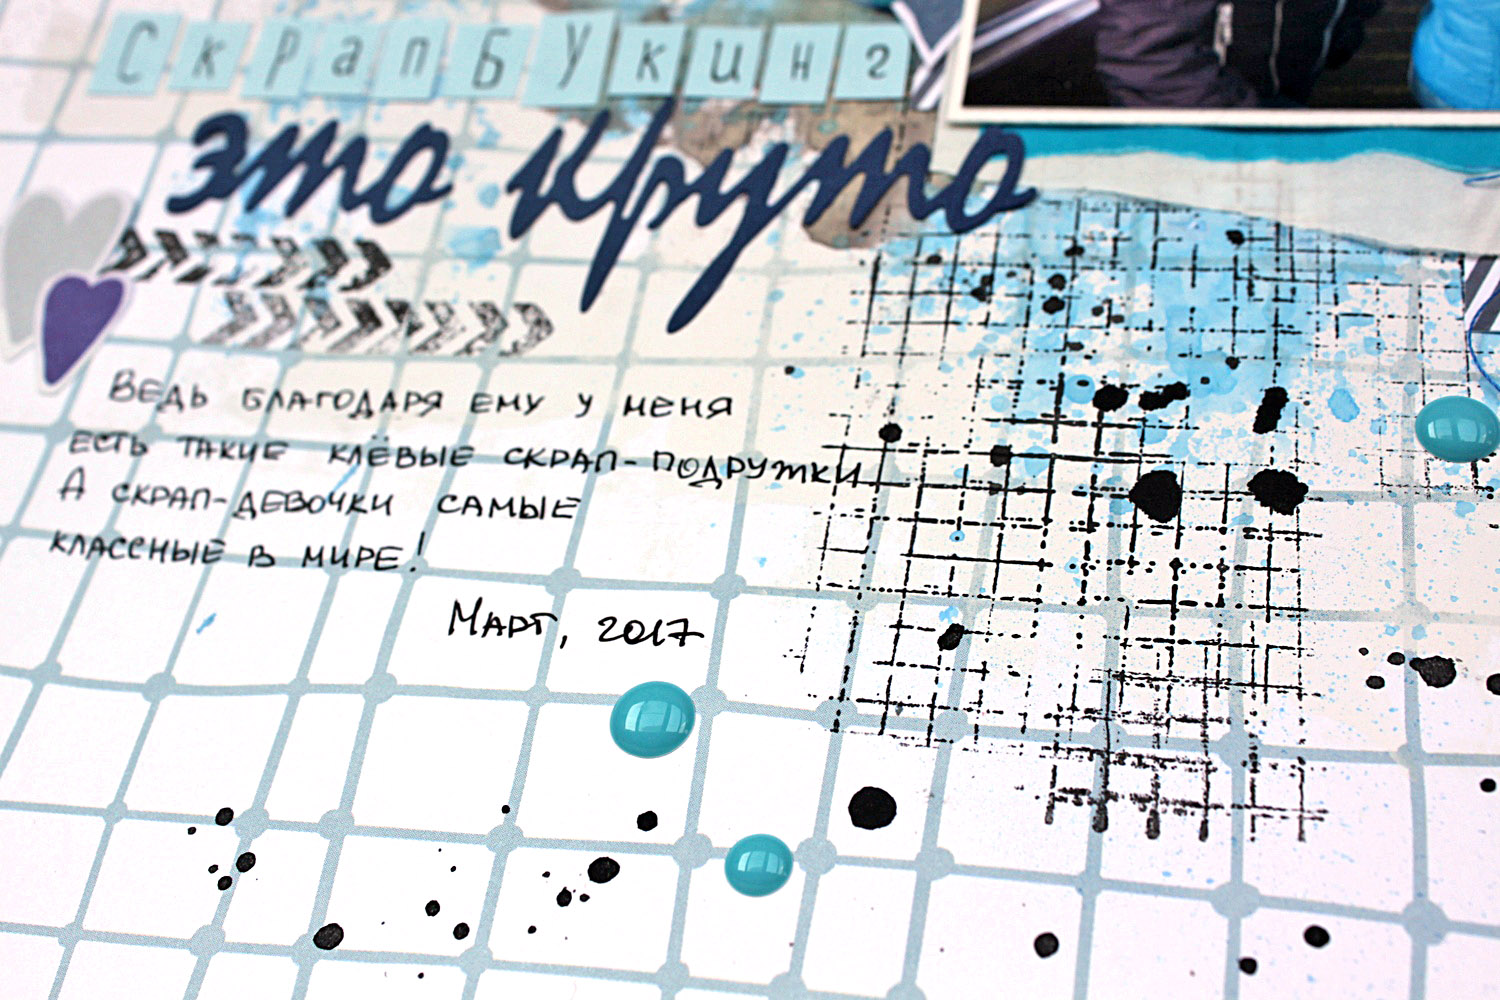 СкрапБукинг
это круто
Ведь благодаря ему у меня
есть такие клёвые скрап-подружки
А скрап-девочки самые
классные в мире!
Март, 2017